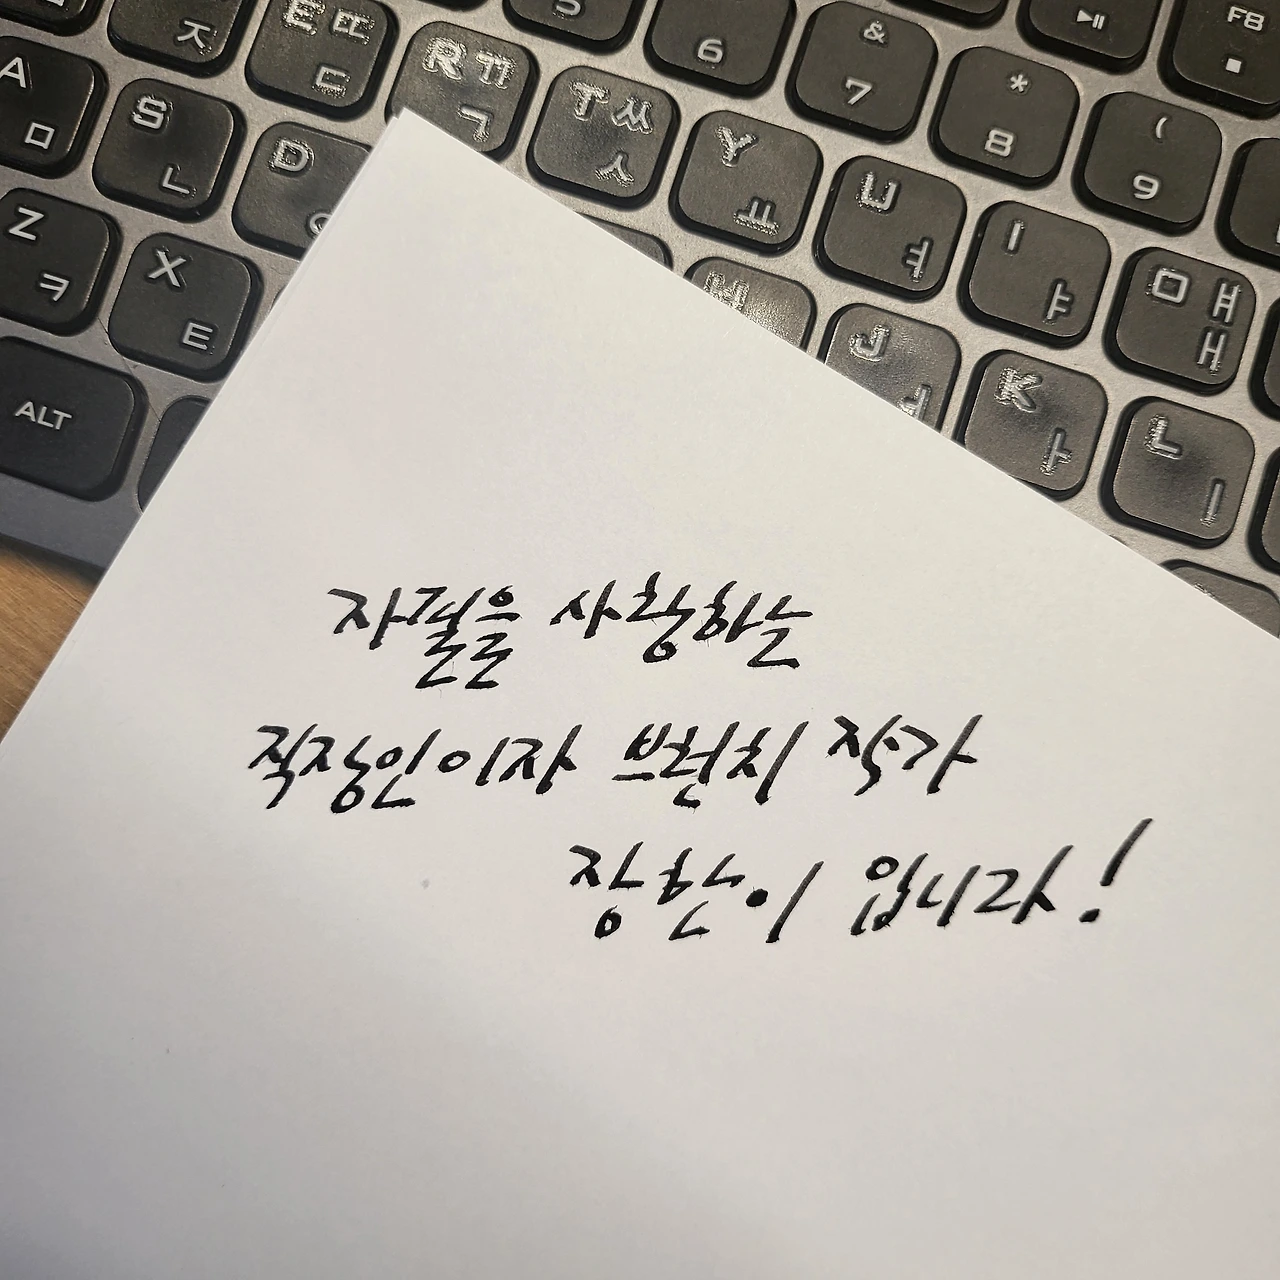 ㅈ E ㄸ ㄷ 5 6 & 7 * 8 ( 9 F8
A ㅁ S ㄴ D R ㄲ ㄱ T ㅆ ㅅ Y ㅛ U ㅕ I ㅑ O ㅒ ㅐ
Z ㅋ X ㅌ H J ㅓ K ㅏ L ㅣ
ALT
사랑하는
직장인이자 브런치 작가
장한이 입니다!